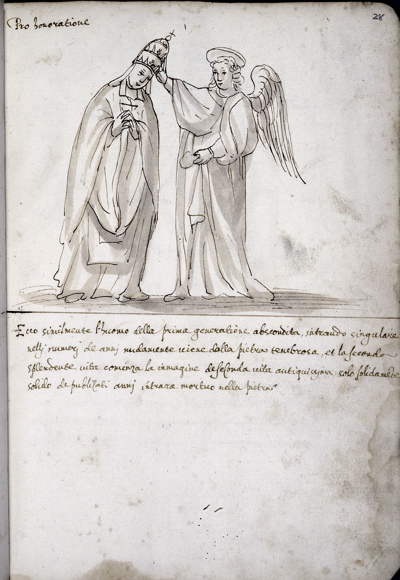 28
Pro honoratione
Ecco similmente l'huomo della prima generatione abscondita, intrando singulare
nelli numeri de anni nudamente viene dalla pietra tenebrosa, et la seconda
splendente vita comenza la inmagine de seconda vita antiquissima solo solidamente
solido de publicati anni intrara mortuo nella pietra